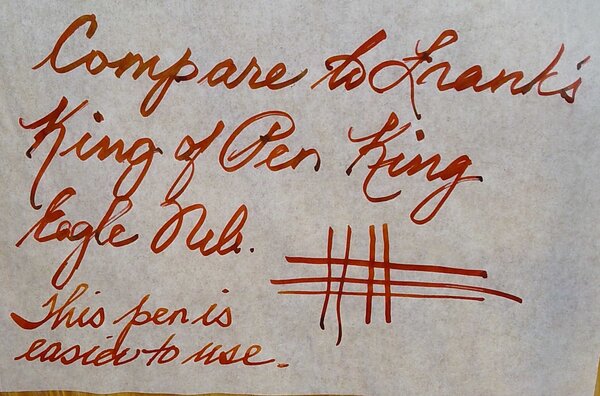 Compare to Frank's
King of Pen King
Eagle Nib.
This pen is
easier to use.